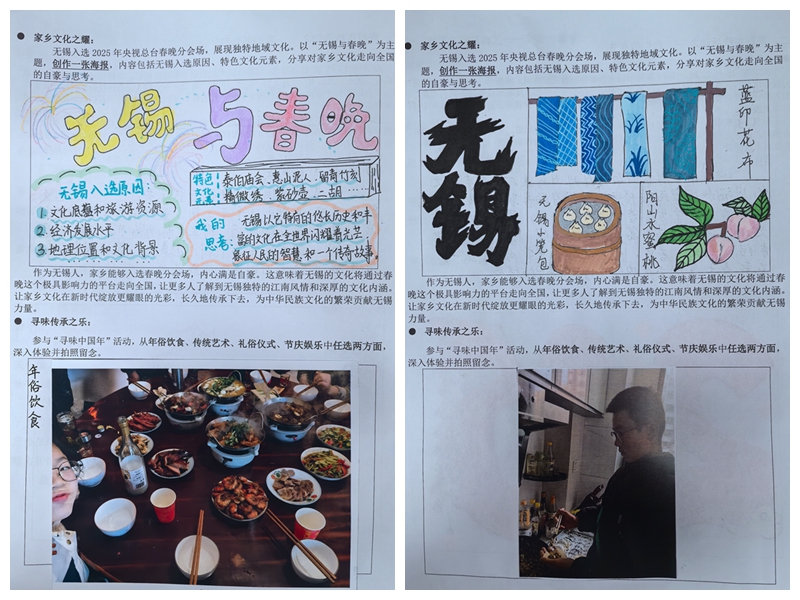 家乡文化之耀：
无锡入选 2025 年央视总台春晚分会场，展现独特地域文化。以“无锡与春晚”为主
题，创作一张海报，内容包括无锡入选原因、特色文化元素，分享对家乡文化走向全国
的自豪与思考。
无锡与春晚
无锡入选原因：
1. 文化底蕴和旅游资源
2. 经济发展水平
3. 地理位置和文化背景
特色文化元素
泰伯庙会、惠山泥人、留青竹刻
精微绣、紫砂壶、二胡……
我的思考：
无锡以它特有的悠长历史和丰
富的文化在全世界闪耀着光芒
象征人民的智慧和一个传奇故事。
作为无锡人，家乡能够入选春晚分会场，内心满是自豪。这意味着无锡的文化将通过春
晚这个极具影响力的平台走向全国，让更多人了解到无锡独特的江南风情和深厚的文化内涵。
让家乡文化在新时代绽放更耀眼的光彩，长久地传承下去，为中华民族文化的繁荣贡献无锡
力量。
寻味传承之乐：
参与“寻味中国年”活动，从年俗饮食、传统艺术、礼俗仪式、节庆娱乐中任选两方面，
深入体验并拍照留念。
年俗饮食
家乡文化之耀：
无锡入选 2025 年央视总台春晚分会场，展现独特地域文化。以“无锡与春晚”为主
题，创作一张海报，内容包括无锡入选原因、特色文化元素，分享对家乡文化走向全国
的自豪与思考。
无锡
蓝印花布
无锡小笼包
阳山水蜜桃
作为无锡人，家乡能够入选春晚分会场，内心满是自豪。这意味着无锡的文化将通过春
晚这个极具影响力的平台走向全国，让更多人了解到无锡独特的江南风情和深厚的文化内涵。
让家乡文化在新时代绽放更耀眼的光彩，长久地传承下去，为中华民族文化的繁荣贡献无锡
力量。
寻味传承之乐：
参与“寻味中国年”活动，从年俗饮食、传统艺术、礼俗仪式、节庆娱乐中任选两方面，
深入体验并拍照留念。